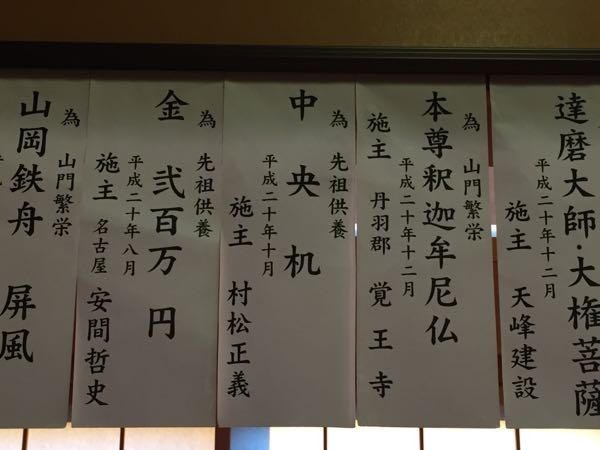 達磨大師・大権菩薩
平成二十年十二月
施主 天峰建設
為 山門繁栄
本尊釈迦牟尼仏
平成二十年十二月
施主 丹羽郡 覚王寺
為 先祖供養
中央机
平成二十年十月
施主 村松正義
為 先祖供養
金 弐百万円
平成二十年八月
施主 名古屋 安間哲史
為 山門繁栄
山岡鉄舟 屏風